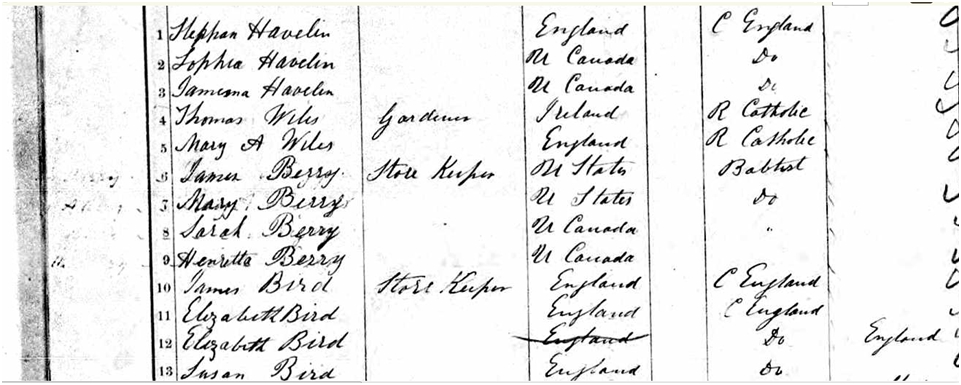 1 Stephan Havelin England C England
2 Sophia Havelin U Canada Do
3 Jamima Havelin U Canada Do
4 Thomas Wiles Gardiner Ireland R Catholic
5 Mary A Wiles England R Catholic
6 James Berry Store Keeper U States Babtist
7 Mary Berry U States Do
8 Sarah Berry U Canada "
9 Henretta Berry U Canada
10 James Bird Store Keeper England C England
11 Elizabeth Bird England C England
12 Elizabeth Bird England Do England
13 Susan Bird England Do